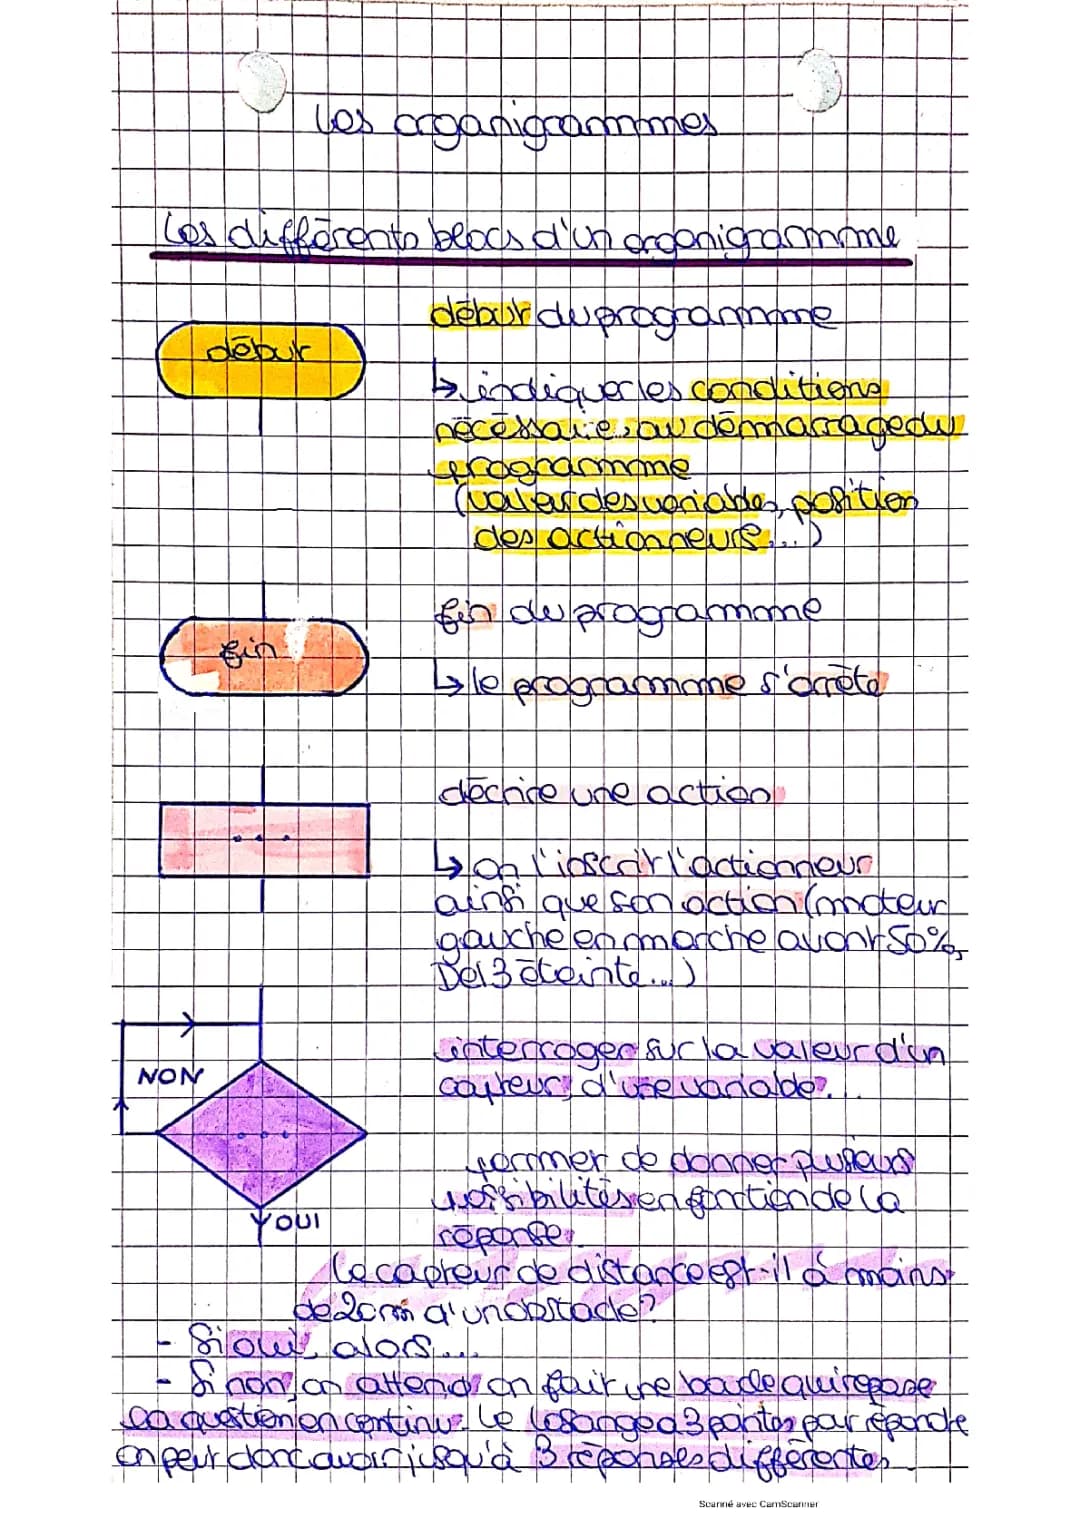 Les organigrammes
Les différents blocs d'un organigramme
début
début du programme
↳ indiquer les conditions
nécessaire, au démarrage du
programme
(valeur des variables, position
des actionneurs...)
fin
fin du programme
↳ le programme s'arrête
...
décrire une action
↳ on l'inscrit l'actionneur
ainsi que son action (moteur
gauche en marche avant 50%,
Del 3 éteinte...)
NON
...
OUI
interroger sur la valeur d'un
capteur, d'une variable...
permer de donner plusieurs
possibilités en fonction de la
réponse.
Le capteur de distance est-il à moins
de 20cm d'un obstacle?
- Si oui, alors...
- Si non, on attend on fait une boucle qui repose
la question en continu. Le losange a 3 pointes par répondre
on peut donc avoir jusqu'à 3 réponses différentes
Scanné avec CamScanner